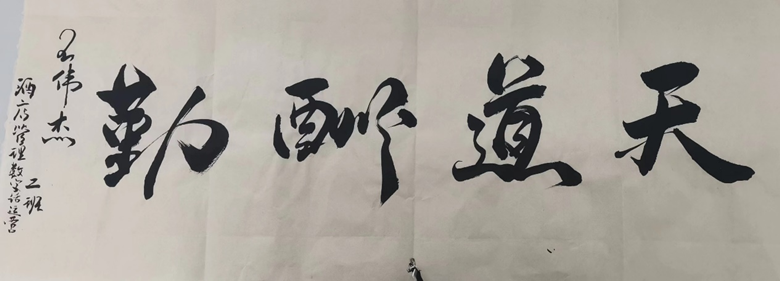 天道酬勤
王伟杰
酒店管理数字话运营
二班